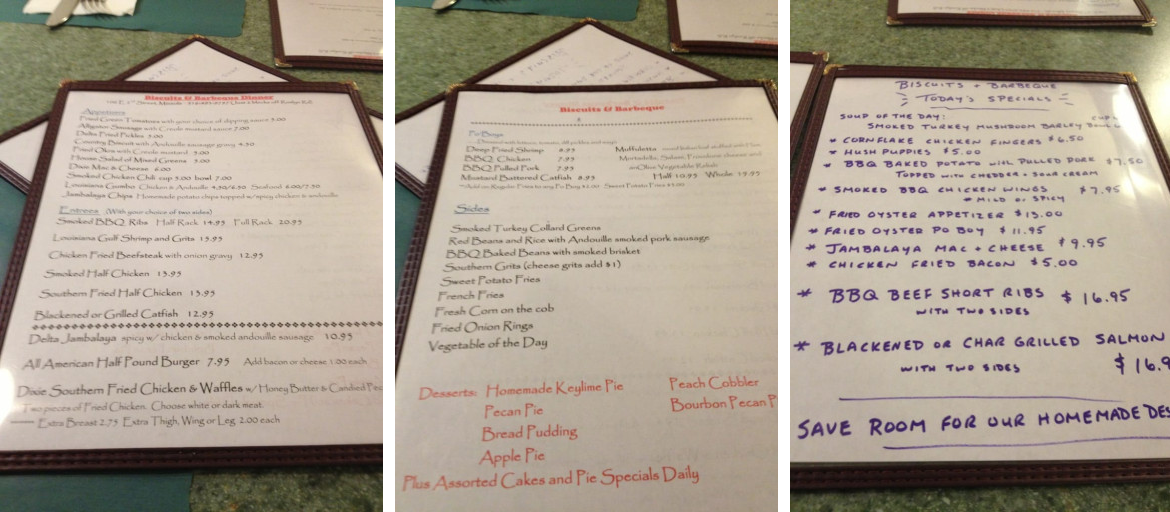 Biscuits & Barbeque Dinner
Appetizers
Fried Green Tomatoes with your choice of dipping sauce 5.00
Alligator Sausage with Creole mustard sauce 7.00
Delta Fried Pickles 5.00
Country Biscuit with Andouille sausage gravy 4.50
Fried Okra with Creole mustard 5.00
House Salad of Mixed Greens 5.00
Dixie Mac & Cheese 6.00
Smoked Chicken Chili cup 5.00 bowl 7.00
Louisiana Gumbo Chicken & Andouille 4.50/6.50 Seafood 6.00/7.50
Jambalaya Chips Homemade potato chips topped w/spicy chicken & andouille
Entrees (With your choice of two sides)
Smoked BBQ Ribs Half Rack 14.95 Full Rack 20.95
Louisiana Gulf Shrimp and Grits 15.95
Chicken Fried Beefsteak with onion gravy 12.95
Smoked Half Chicken 13.95
Southern Fried Half Chicken 13.95
Blackened or Grilled Catfish 12.95
Delta Jambalaya spicy w/ chicken & smoked andouille sausage 10.95
All American Half Pound Burger 7.95 Add bacon or cheese 1.00 each
Dixie Southern Fried Chicken & Waffles w/ Honey Butter & Candied Pec
Two pieces of Fried Chicken. Choose white or dark meat.
Extra Breast 2.75 Extra Thigh, Wing or Leg 2.00 each
Biscuits & Barbeque
Po'Boys
Deep Fried Shrimp 8.95 Muffuletta
BBQ Chicken 7.95 Mortadella, Salami, Provolone cheese and
BBQ Pulled Pork 7.95 an Olive Vegetable Relish
Mustard Battered Catfish 8.95 Half 10.95 Whole 19.95
*Add on Regular Fries to any Po Boy $1.00 Sweet Potato Fries $1.00
Sides
Smoked Turkey Collard Greens
Red Beans and Rice with Andouille smoked pork sausage
BBQ Baked Beans with smoked brisket
Southern Grits (cheese grits add $1)
Sweet Potato Fries
French Fries
Fresh Corn on the cob
Fried Onion Rings
Vegetable of the Day
Desserts: Homemade Keylime Pie Peach Cobbler
Pecan Pie Bourbon Pecan P
Bread Pudding
Apple Pie
Plus Assorted Cakes and Pie Specials Daily
BISCUITS + BARBEQUE
TODAY'S SPECIALS
SOUP OF THE DAY: CUP
SMOKED TURKEY MUSHROOM BARLEY
* CORNFLAKE CHICKEN FINGERS $6.50
* HUSH PUPPIES $5.00
* BBQ BAKED POTATO WITH PULLED PORK $7.50
TOPPED WITH CHEDDER + SOUR CREAM
* SMOKED BBQ CHICKEN WINGS $7.95
* MILD OR SPICY
* FRIED OYSTER APPETIZER $13.00
* FRIED OYSTER PO BOY $11.95
* JAMBALAYA MAC + CHEESE $9.95
* CHICKEN FRIED BACON $5.00
* BBQ BEEF SHORT RIBS $16.95
WITH TWO SIDES
* BLACKENED OR CHAR GRILLED SALMON
WITH TWO SIDES $16.9
SAVE ROOM FOR OUR HOMEMADE DES